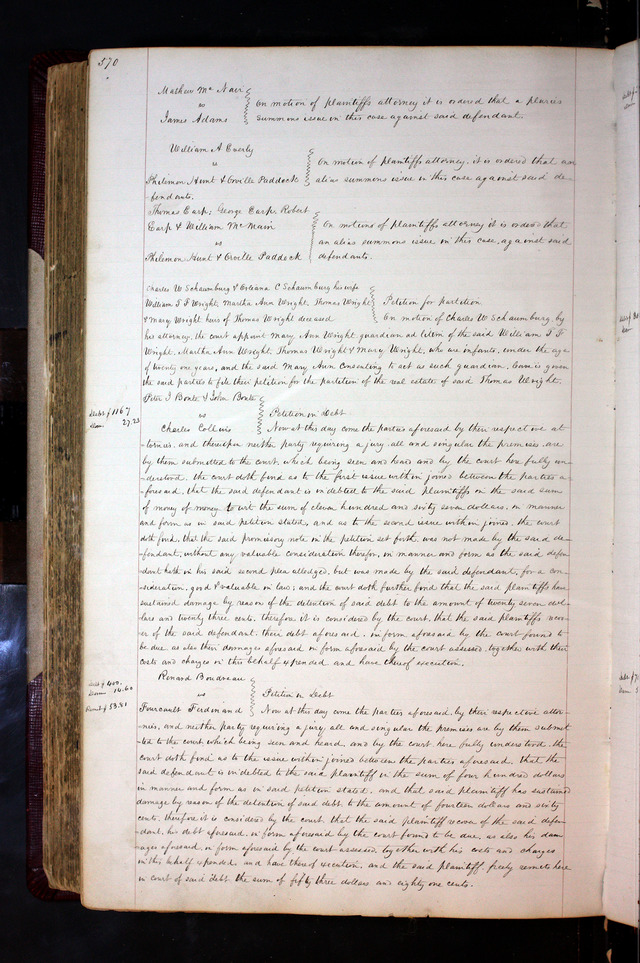 570
Mathew Mc Nair
vs
James Adams
On motion of plaintiffs attorney it is ordered that a pluries
summons issue in this case against said defendant.
William A Enerly
vs
Philemon Hunt & Orville Paddock
fendants.
On motion of plaintiffs attorney, it is ordered that an
alias summons issue in this case against said de-
Thomas Earp, George Earp, Robert
Earp & William McMain
vs
Philemon Hunt & Orville Paddock
On motion of plaintiffs attorney it is ordered that
an alias summons issue in this case, against said
defendants.
Charles W Schaumburg & Orleana C Schaumburg his wife
William T F Wright, Martha Ann Wright, Thomas Wright
& Mary Wright heirs of Thomas Wright deceased
Petition for partition
On motion of Charles W Schaumburg, by
his attorney, the court appoint Mary Ann Wright guardian ad litem of the said William T F
Wright, Martha Ann Wright, Thomas Wright & Mary Wright, who are infants, under the age
of twenty one years, and the said Mary Ann consenting to act as such guardian, leave is given
the said parties to file their petition for the partition of the real estate of said Thomas Wright.
Peter I Bonte & John Bonte
vs
Charles Collins
Debt $1167
Dam 27.23
Petition in Debt
Now at this day come the parties aforesaid by their respective at-
tornies, and thereupon neither party requiring a jury, all and singular the premises are
by them submitted to the court, which being seen and heard and by the court here fully un-
derstood, the court doth find as to the first issue within joined between the parties a-
foresaid, that the said defendant is indebted to the said plaintiffs in the said sum
of money of money to wit the sum of eleven hundred and sixty seven dollars, in manner
and form as in said petition stated, and as to the second issue within joined, the court
doth find, that the said promissory note in the petition set forth, was not made by the said de-
fendant, without any valuable consideration therefor, in manner and form as the said defen-
dant hath in his said second plea alledged, but was made by the said defendant, for a con-
sideration, good & valuable in law; and the court doth further find that the said plaintiffs have
sustained damage by reason of the detention of said debt to the amount of twenty seven dol-
lars and twenty three cents, therefore it is considered by the court, that the said plaintiffs recov-
er of the said defendant, their debt aforesaid, in form aforesaid by the court found to
be due as also their damages aforesaid in form aforesaid by the court assessed, together with their
costs and charges in this behalf expended, and have thereof execution.
Renard Boudreau
vs
Fourcault Ferdinand
Debt $400.
Dam 14.60
Remit $53.81
Petition in Debt
Now at this day come the parties aforesaid, by their respective attor-
nies, and neither party requiring a jury, all and singular the premises are by them submit-
ted to the court, which being seen and heard, and by the court here fully understood, the
court doth find as to the issue within joined between the parties aforesaid, that the
said defendant is indebted to the said plaintiff in the sum of four hundred dollars
in manner and form as in said petition stated, and that said plaintiff has sustained
damage by reason of the detention of said debt to the amount of fourteen dollars and sixty
cents, therefore it is considered by the court that the said plaintiff recover of the said defen-
dant, his debt aforesaid, in form aforesaid by the court found to be due, as also his dam-
ages aforesaid, in form aforesaid by the court assessed, together with his costs and charges
in this behalf expended, and have thereof execution, and the said plaintiff freely remits here
in court of said debt the sum of fifty three dollars and eighty one cents.